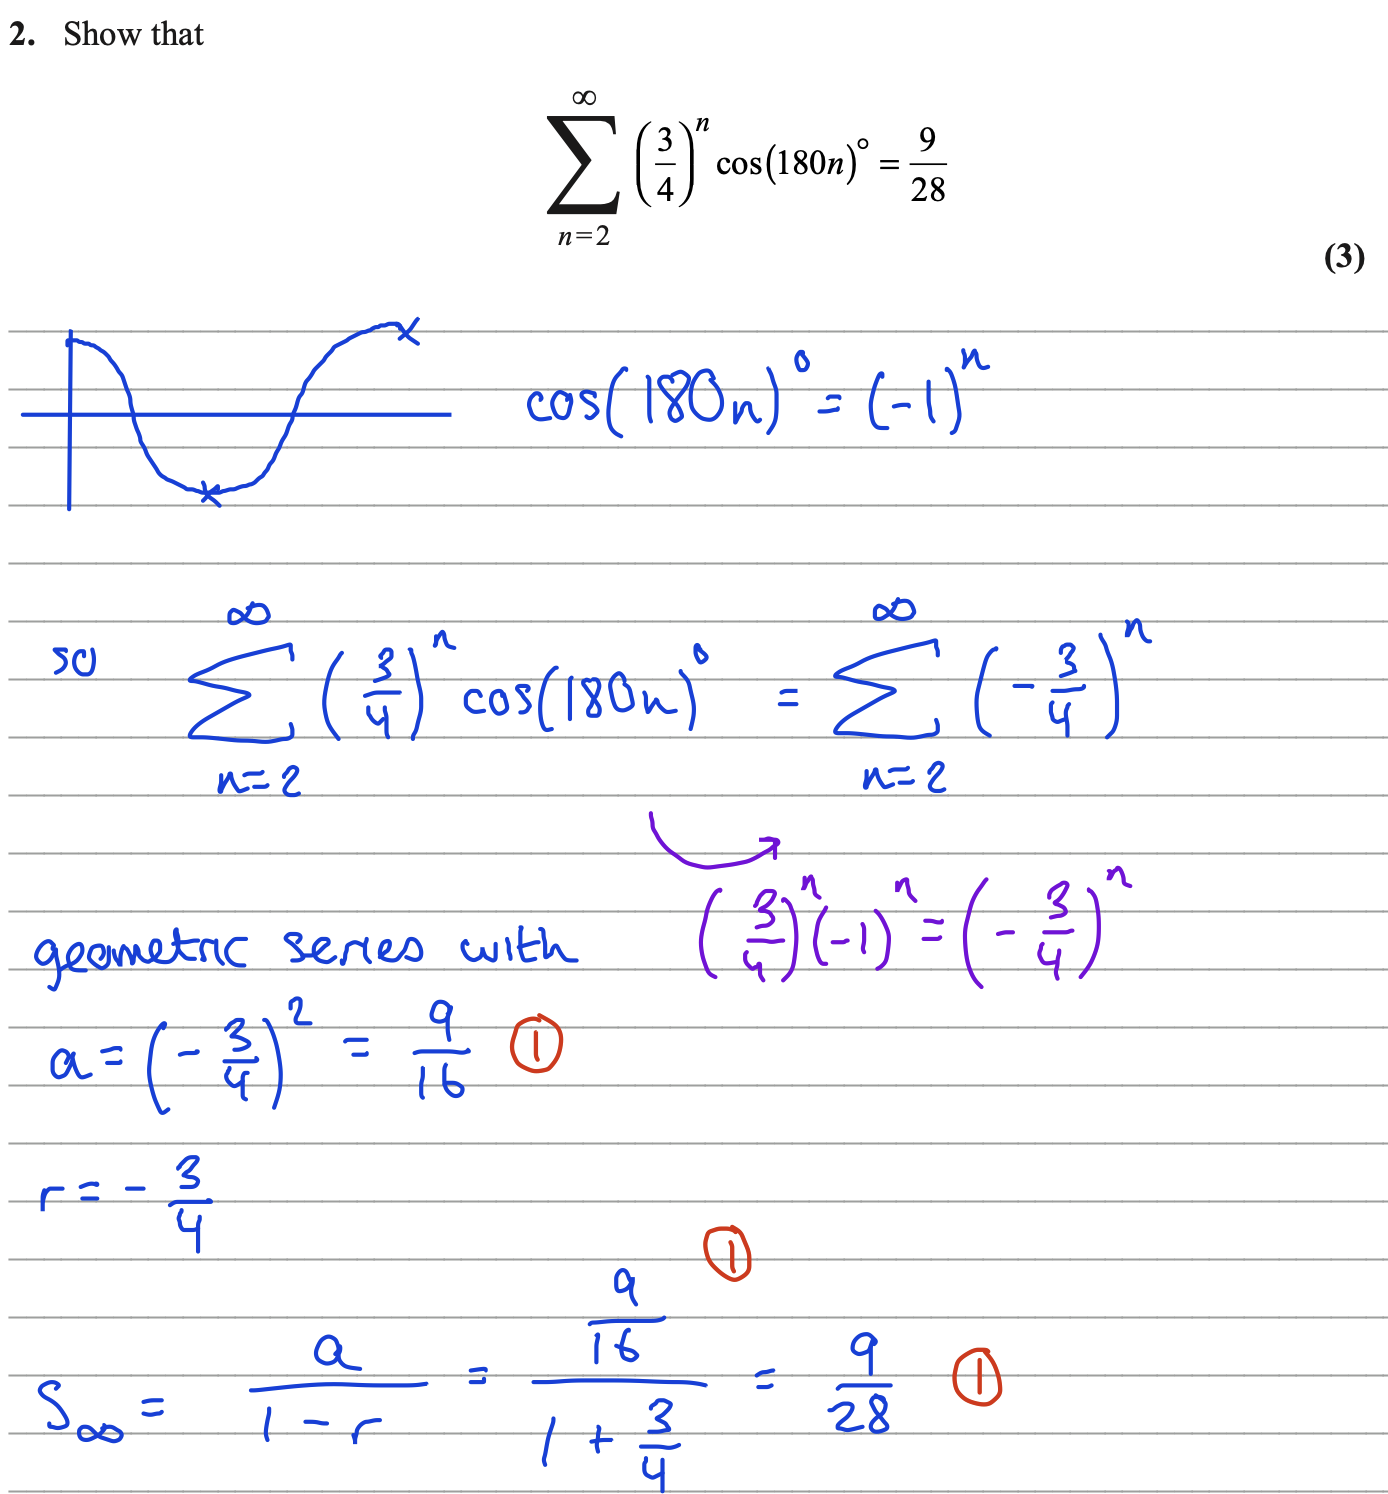 2. Show that
∞
∑ (3/4)ⁿ cos(180n)° = 9/28
n=2
(3)
cos(180n)° = (-1)ⁿ
∞ ∞
so ∑ (3/4)ⁿ cos(180n)° = ∑ (-3/4)ⁿ
n=2 n=2
(3/4)ⁿ(-1)ⁿ = (-3/4)ⁿ
geometric series with
a = (-3/4)² = 9/16 ①
r = -3/4
①
S∞ = a/(1-r) = (9/16)/(1+3/4) = 9/28 ①